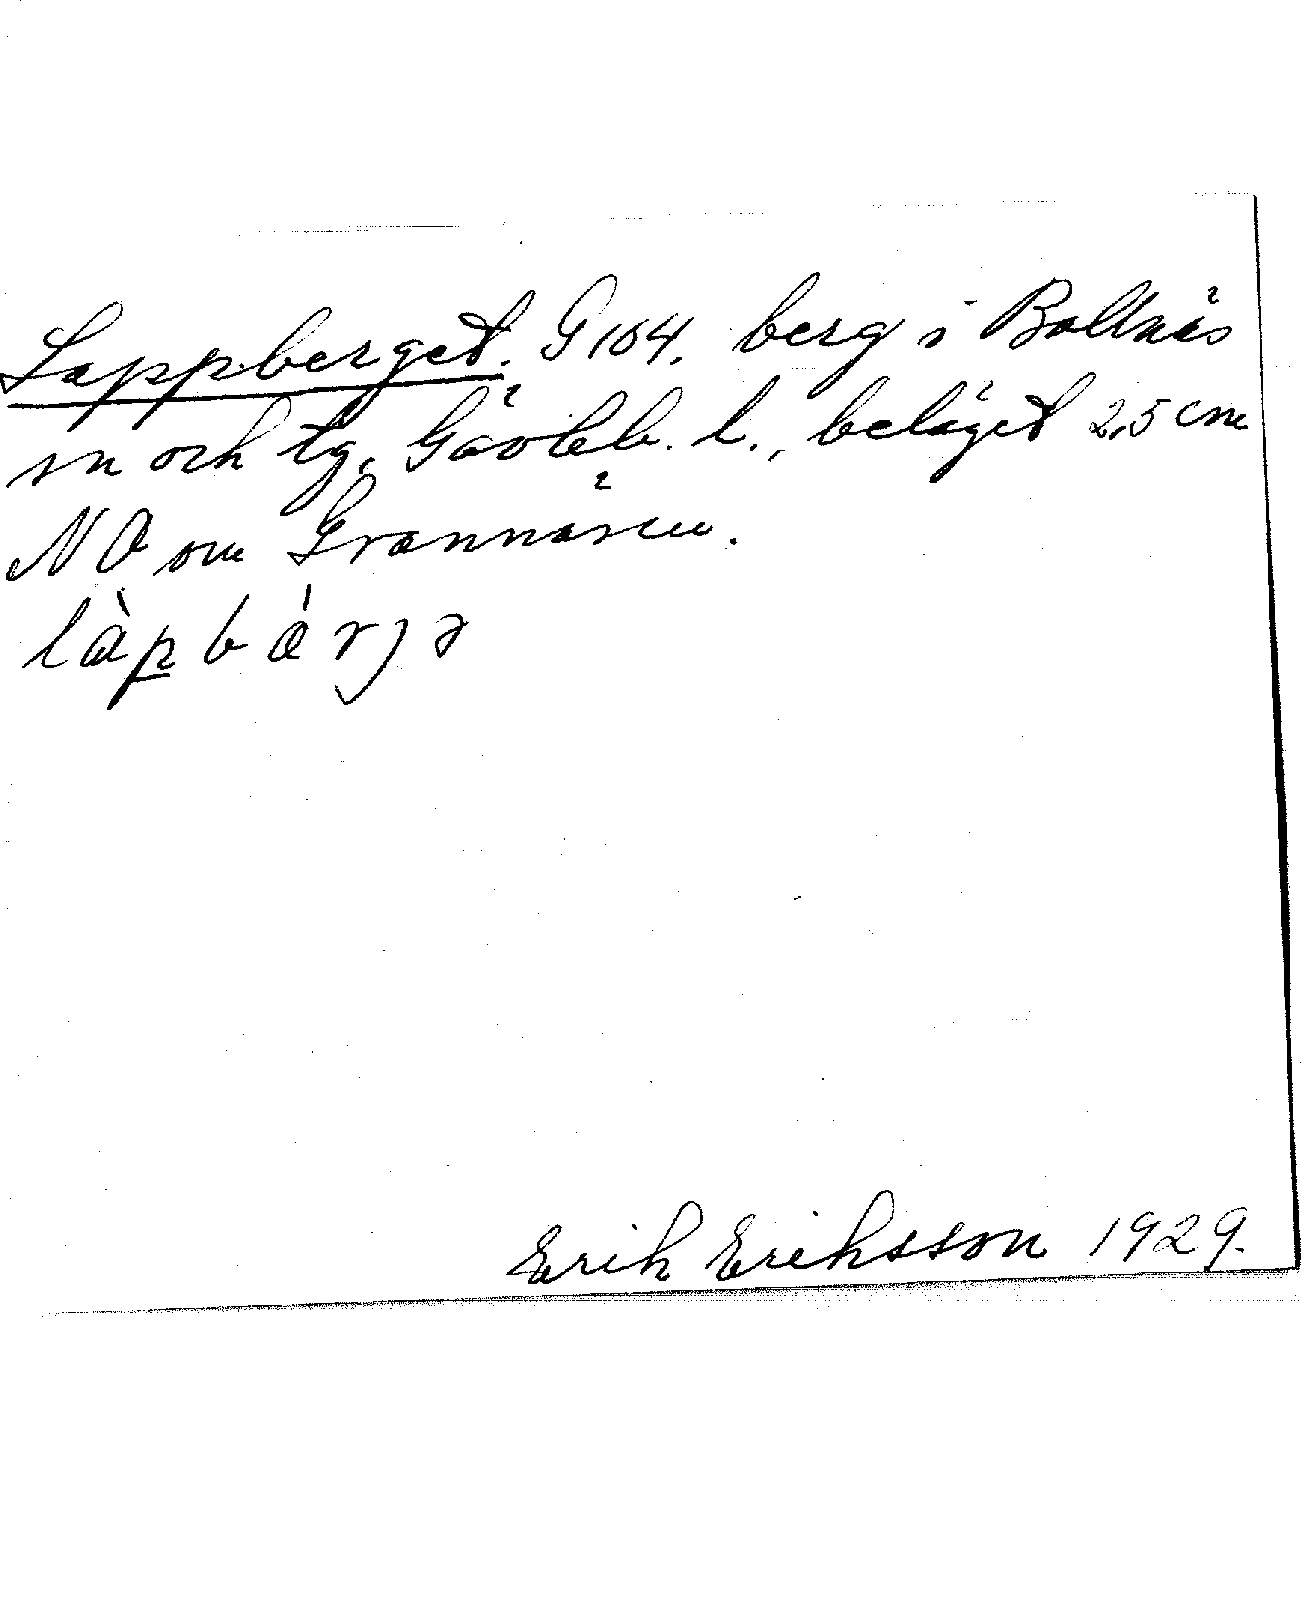 Lappberget. G104. berg i Bollnäs
sn och tg, Gävleb. l., beläget 2,5 cm
NO om Grannäsen.
làpbárjə
Erik Eriksson 1929.